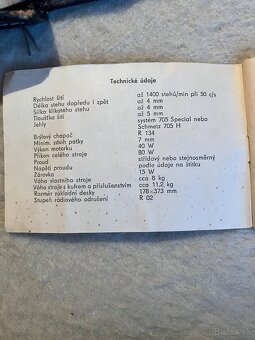 Technické údaje
Rychlost šití až 1400 stehů/min při 50 c/s
Délka stehu dopředu i zpět až 4 mm
Šířka klikatého stehu až 4 mm
Tloušťka šití až 5 mm
Jehly systém 705 Special nebo
Schmetz 705 H
Brýlový chapač R 134
Minim. zdvih patky 7 mm
Výkon motorku 40 W
Příkon celého stroje 80 W
Proud střídavý nebo stejnosměrný
Napětí proudu podle údaje na štítku
Žárovka 15 W
Váha vlastního stroje cca 8 kg
Váha stroje s kufrem a příslušenstvím cca 11,2 kg
Rozměr základní desky 178×373 mm
Stupeň rádiového odrušení R 02